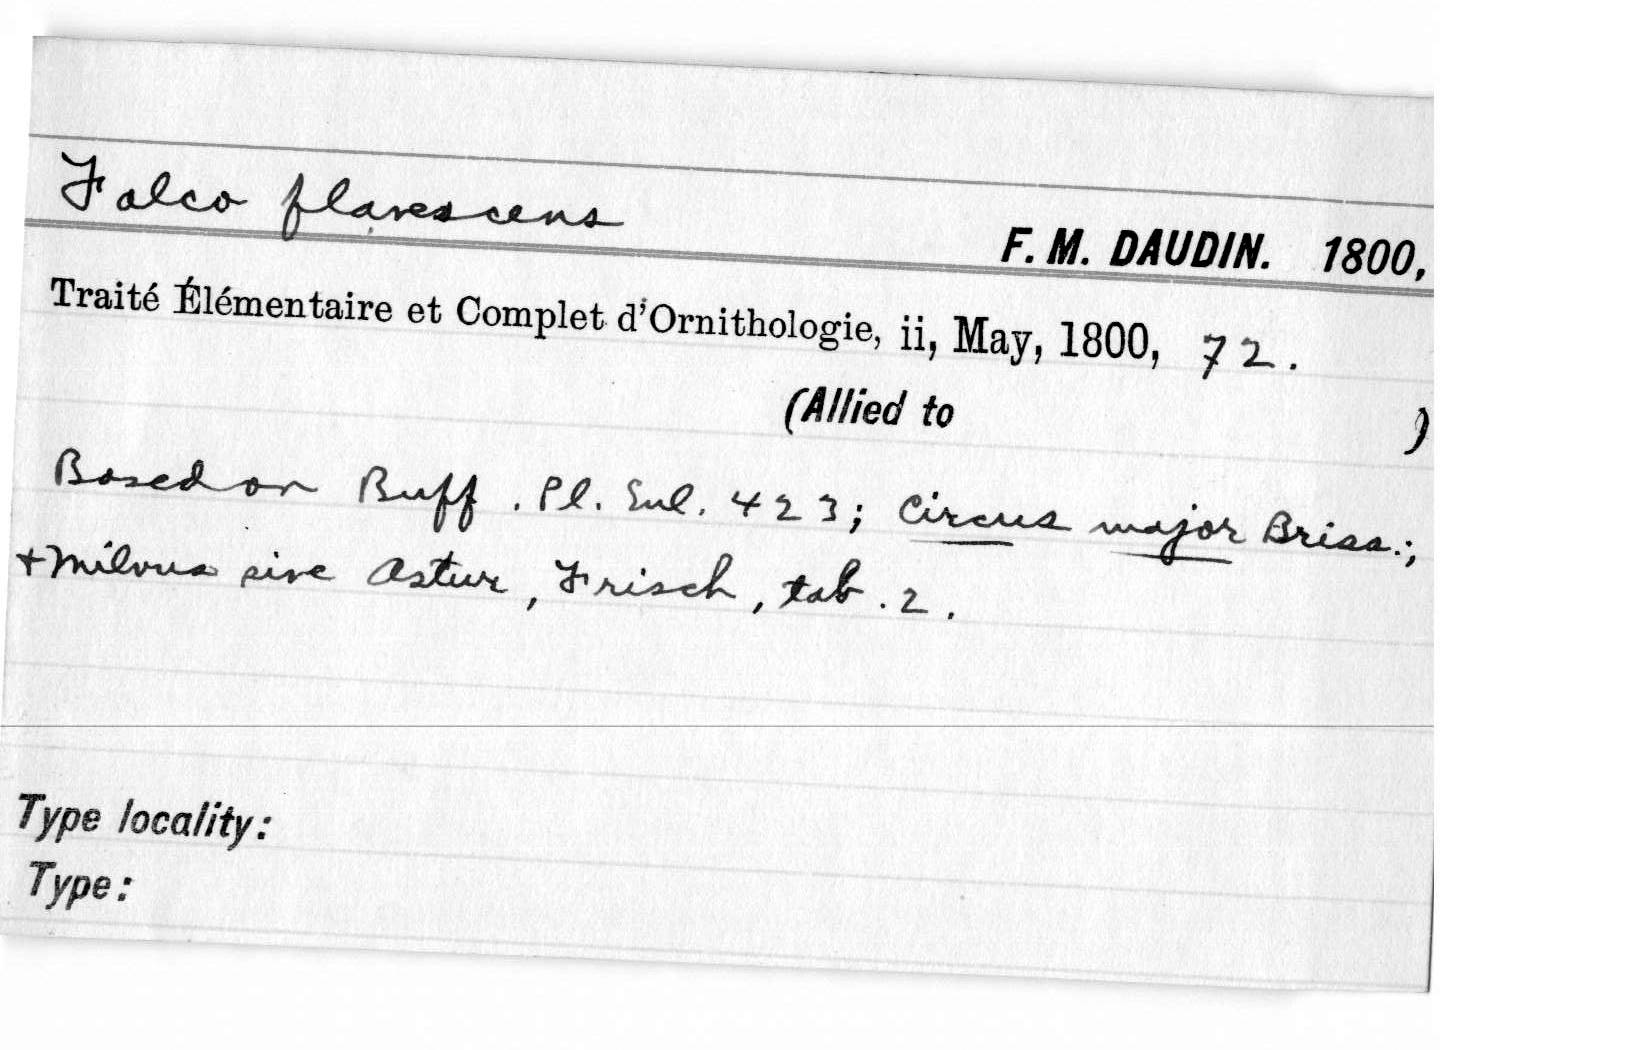 Falco flavescens
F. M. DAUDIN. 1800,
Traité Élémentaire et Complet d'Ornithologie, ii, May, 1800, 72.
(Allied to )
Based on Buff. Pl. Enl. 423; Circus major Briss.;
+ Milvus sive Astur, Frisch, tab. 2.
Type locality:
Type: